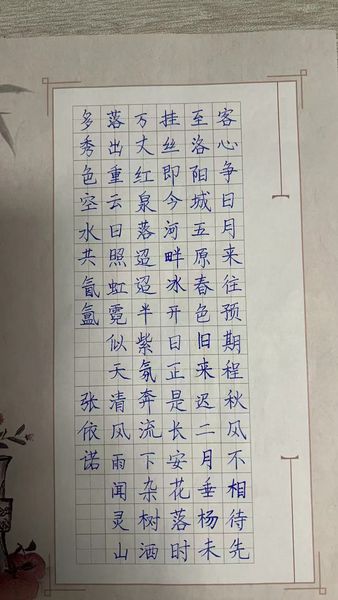 客心争日月来往预期程秋风不相待先
至洛阳城五原春色旧来迟二月垂杨未
挂丝即今河畔冰开日正是长安花落时
万丈红泉落迢迢半紫氛奔流下杂树洒
落出重云日照虹霓似天清风雨闻灵山
多秀色空水共氤氲 张依诺